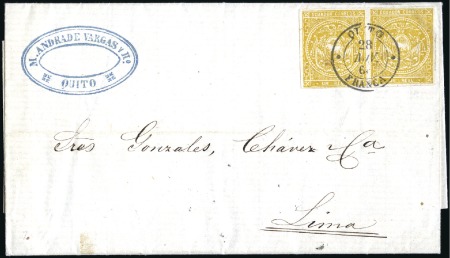 M. ANDRADE VARGAS Y Hº
QUITO
QUITO
28
FRANCA
Sres Gonzales, Chávez i Ca
Lima